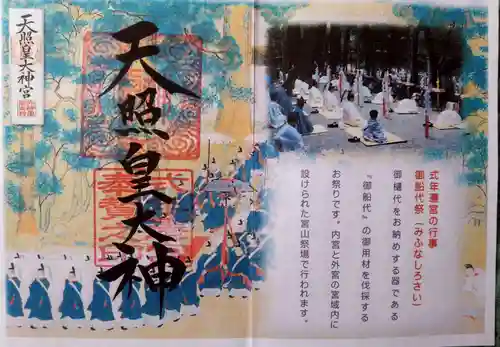 式年遷宮の行事
御船代祭(みふなしろさい)
御樋代をお納めする器である
『御船代』の御用材を伐採する
お祭りです。内宮と外宮の宮域内に
設けられた宮山祭場で行われます。
天照皇大神
天照皇大神宮
奉賛之